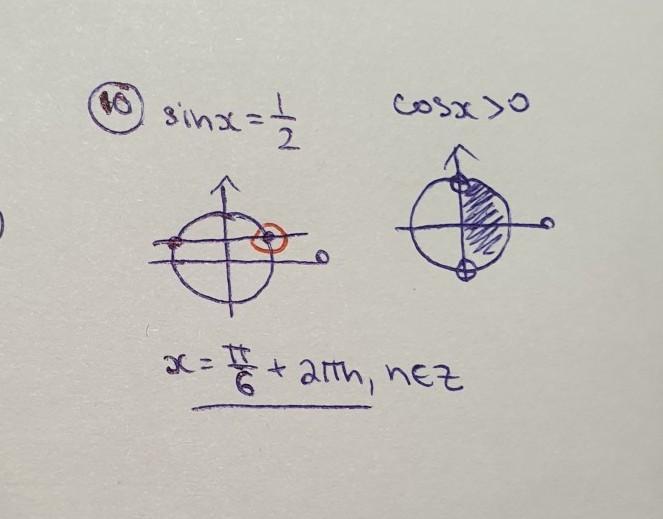 10 sinx = 1/2 cosx > 0
x = π/6 + 2πn, n∈Z